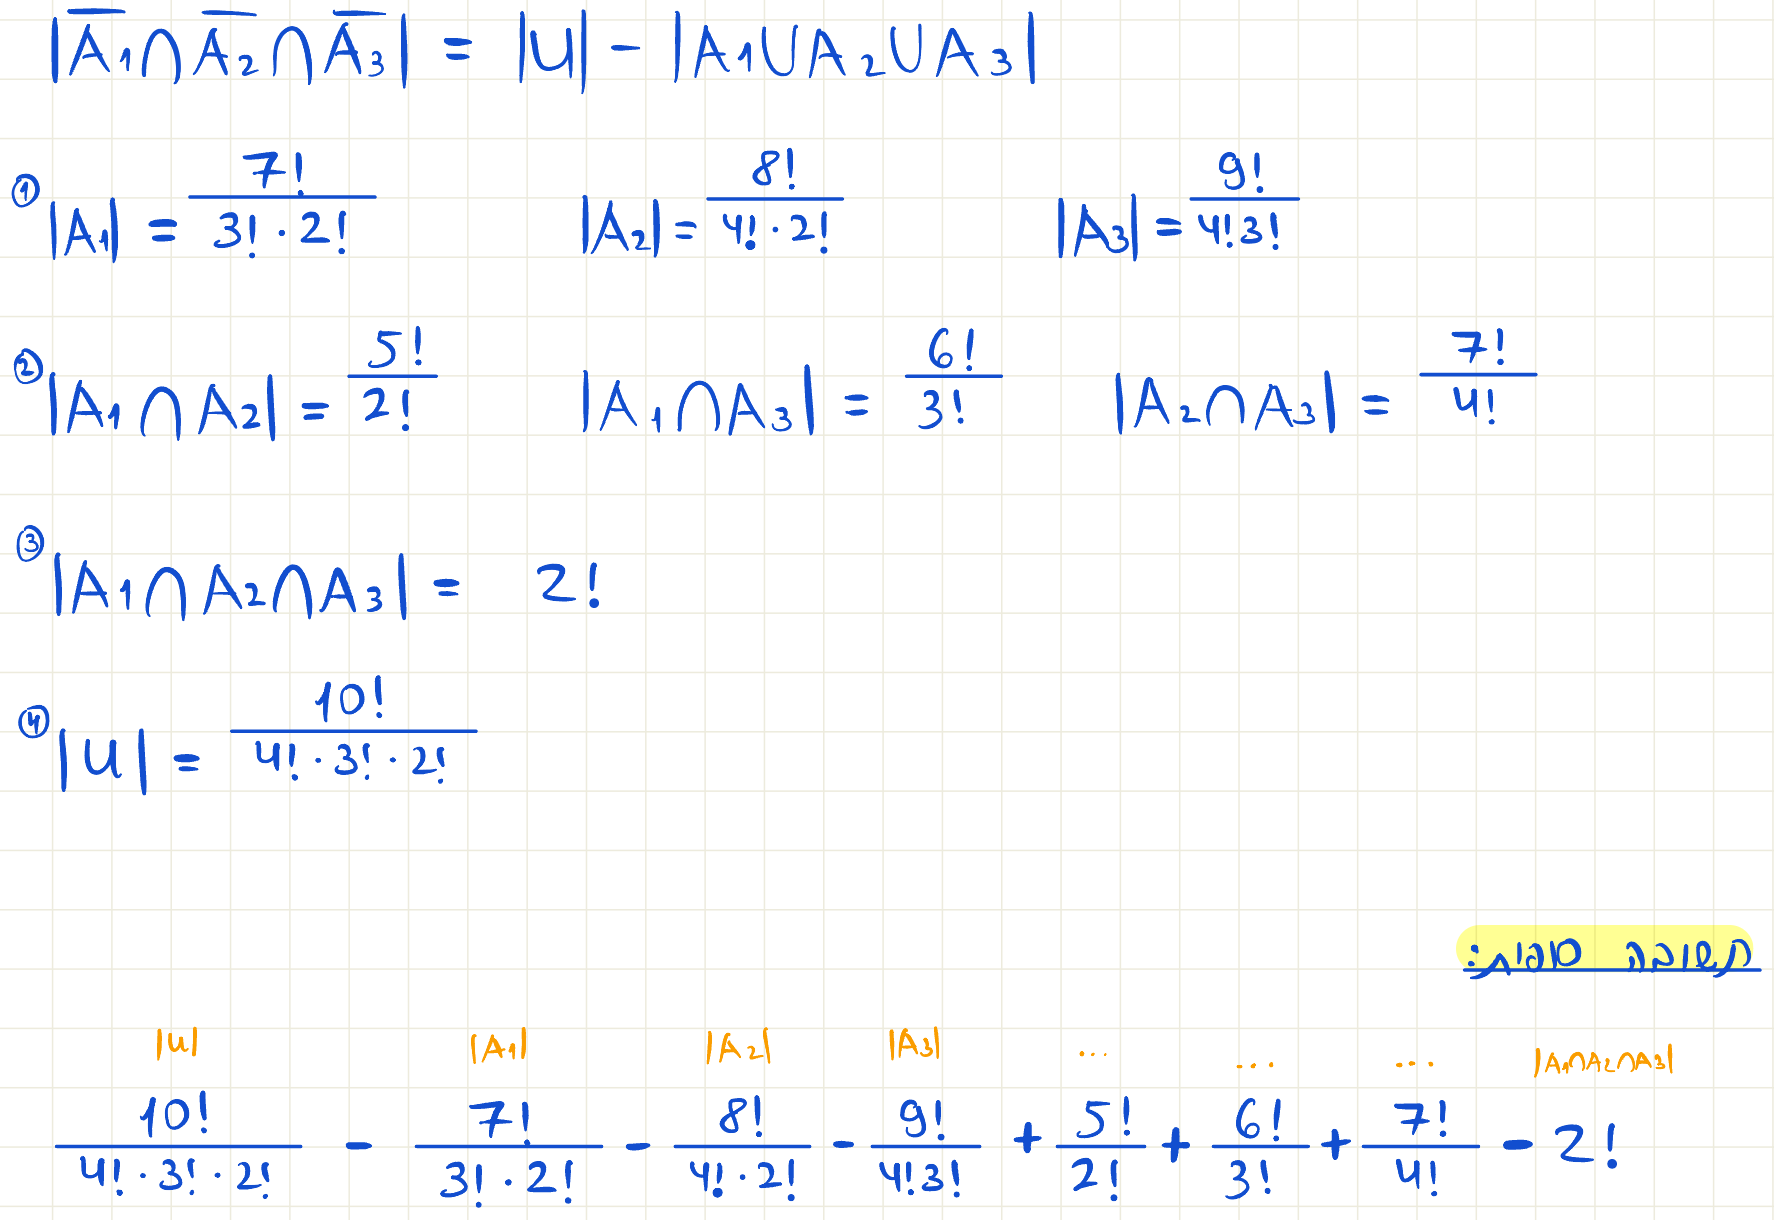 |A̅₁∩A̅₂∩A̅₃| = |U| - |A₁∪A₂∪A₃|
① |A₁| = 7!/(3!·2!) |A₂| = 8!/(4!·2!) |A₃| = 9!/(4!3!)
② |A₁∩A₂| = 5!/2! |A₁∩A₃| = 6!/3! |A₂∩A₃| = 7!/4!
③ |A₁∩A₂∩A₃| = 2!
④ |U| = 10!/(4!·3!·2!)
תשובה סופית:
|U| |A₁| |A₂| |A₃| ... ... ... |A₁∩A₂∩A₃|
10!/(4!·3!·2!) - 7!/(3!·2!) - 8!/(4!·2!) - 9!/(4!3!) + 5!/2! + 6!/3! + 7!/4! - 2!